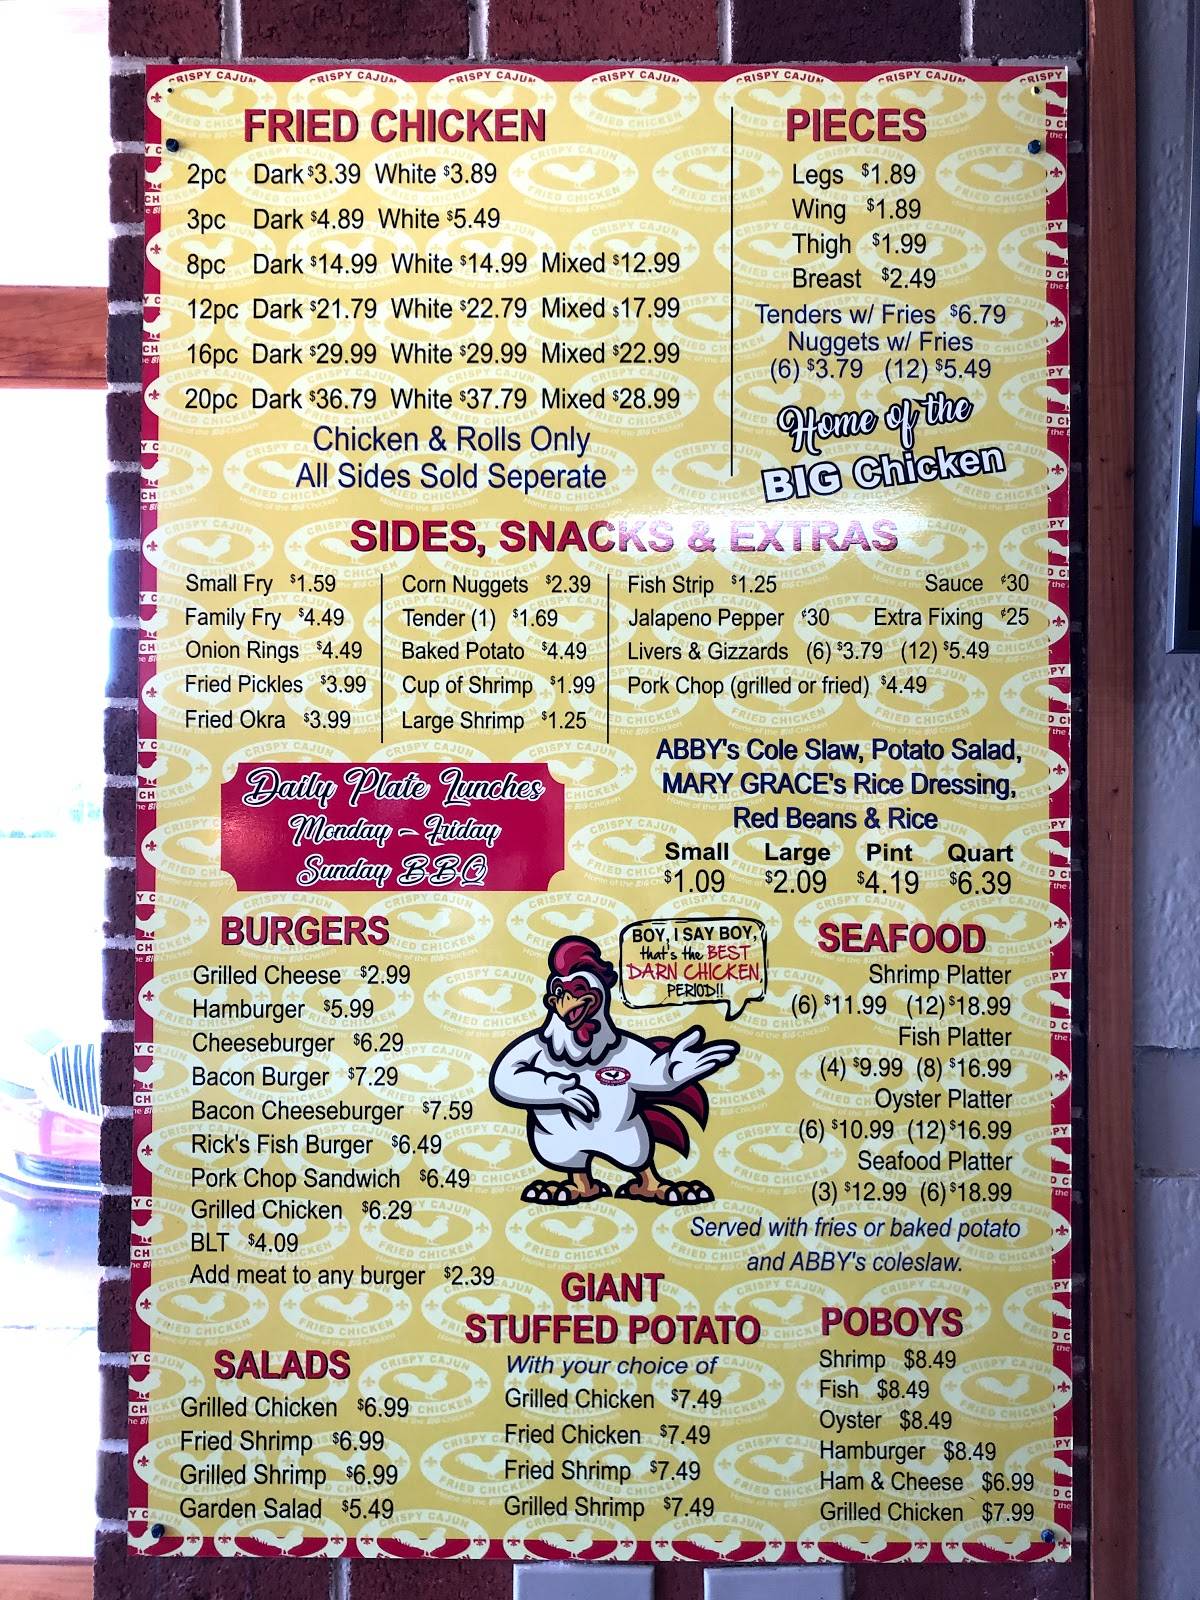 FRIED CHICKEN
2pc Dark $3.39 White $3.89
3pc Dark $4.89 White $5.49
8pc Dark $14.99 White $14.99 Mixed $12.99
12pc Dark $21.79 White $22.79 Mixed $17.99
16pc Dark $29.99 White $29.99 Mixed $22.99
20pc Dark $36.79 White $37.79 Mixed $28.99
Chicken & Rolls Only
All Sides Sold Seperate
PIECES
Legs $1.89
Wing $1.89
Thigh $1.99
Breast $2.49
Tenders w/ Fries $6.79
Nuggets w/ Fries
(6) $3.79 (12) $5.49
Home of the
BIG Chicken
SIDES, SNACKS & EXTRAS
Small Fry $1.59
Family Fry $4.49
Onion Rings $4.49
Fried Pickles $3.99
Fried Okra $3.99
Corn Nuggets $2.39
Tender (1) $1.69
Baked Potato $4.49
Cup of Shrimp $1.99
Large Shrimp $1.25
Fish Strip $1.25 Sauce ¢30
Jalapeno Pepper ¢30 Extra Fixing ¢25
Livers & Gizzards (6) $3.79 (12) $5.49
Pork Chop (grilled or fried) $4.49
ABBY's Cole Slaw, Potato Salad,
MARY GRACE's Rice Dressing,
Red Beans & Rice
Small Large Pint Quart
$1.09 $2.09 $4.19 $6.39
Daily Plate Lunches
Monday - Friday
Sunday BBQ
BURGERS
Grilled Cheese $2.99
Hamburger $5.99
Cheeseburger $6.29
Bacon Burger $7.29
Bacon Cheeseburger $7.59
Rick's Fish Burger $6.49
Pork Chop Sandwich $6.49
Grilled Chicken $6.29
BLT $4.09
Add meat to any burger $2.39
BOY, I SAY BOY,
that's the BEST
DARN CHICKEN,
PERIOD!!
SEAFOOD
Shrimp Platter
(6) $11.99 (12) $18.99
Fish Platter
(4) $9.99 (8) $16.99
Oyster Platter
(6) $10.99 (12) $16.99
Seafood Platter
(3) $12.99 (6) $18.99
Served with fries or baked potato
and ABBY's coleslaw.
SALADS
Grilled Chicken $6.99
Fried Shrimp $6.99
Grilled Shrimp $6.99
Garden Salad $5.49
GIANT
STUFFED POTATO
With your choice of
Grilled Chicken $7.49
Fried Chicken $7.49
Fried Shrimp $7.49
Grilled Shrimp $7.49
POBOYS
Shrimp $8.49
Fish $8.49
Oyster $8.49
Hamburger $8.49
Ham & Cheese $6.99
Grilled Chicken $7.99